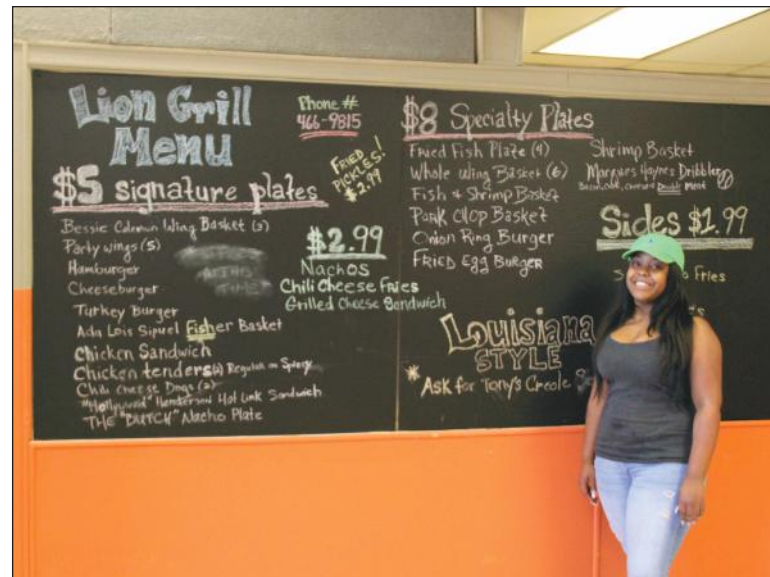 Lion Grill
Menu
Phone #
466-9815
FRIED
PICKLES!
$2.99
$5 signature plates
Bessie Coleman Wing Basket (3)
Party wings (5)
Hamburger
Cheeseburger
Turkey Burger
Ada Lois Sipuel Fisher Basket
Chicken Sandwich
Chicken tenders Regular or Spicy
Chili Cheese Dogs (2)
"Hollywood" Henderson Hot Link Sandwich
THE "BUTCH" Nacho Plate
$2.99
Nachos
Chili Cheese Fries
Grilled Cheese Sandwich
$8 Specialty Plates
Fried Fish Plate (4)
Whole Wing Basket (6)
Fish & Shrimp Basket
Pork Chop Basket
Onion Ring Burger
FRIED Egg BURGER
Shrimp Basket
Marques Haynes Dribbler
Double Meat
Sides $1.99
Fries
Louisiana
STYLE
* Ask for Tony's Creole